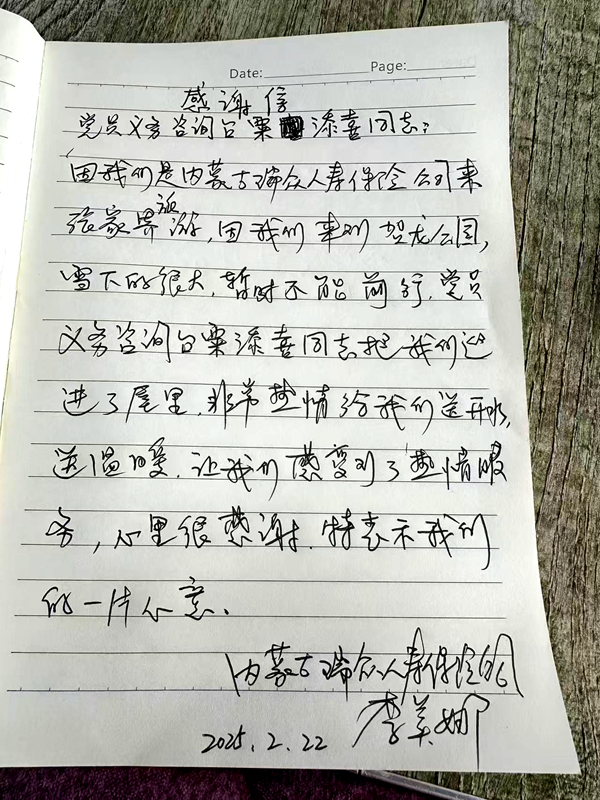 Date: Page:
感谢信
党员义务咨询台栗添喜同志:
因我们是内蒙古瑞众人寿保险公司来
张家界旅游,因我们来到贺龙公园,
雪下的很大,暂时不能前行,党员
义务咨询台栗添喜同志把我们迎
进了屋里,非常热情给我们送开水,
送温暖,让我们感受到了热情服
务,心里很感谢,特表示我们
的一片心意、
内蒙古瑞众人寿保险的
李美娜
2025.2.22